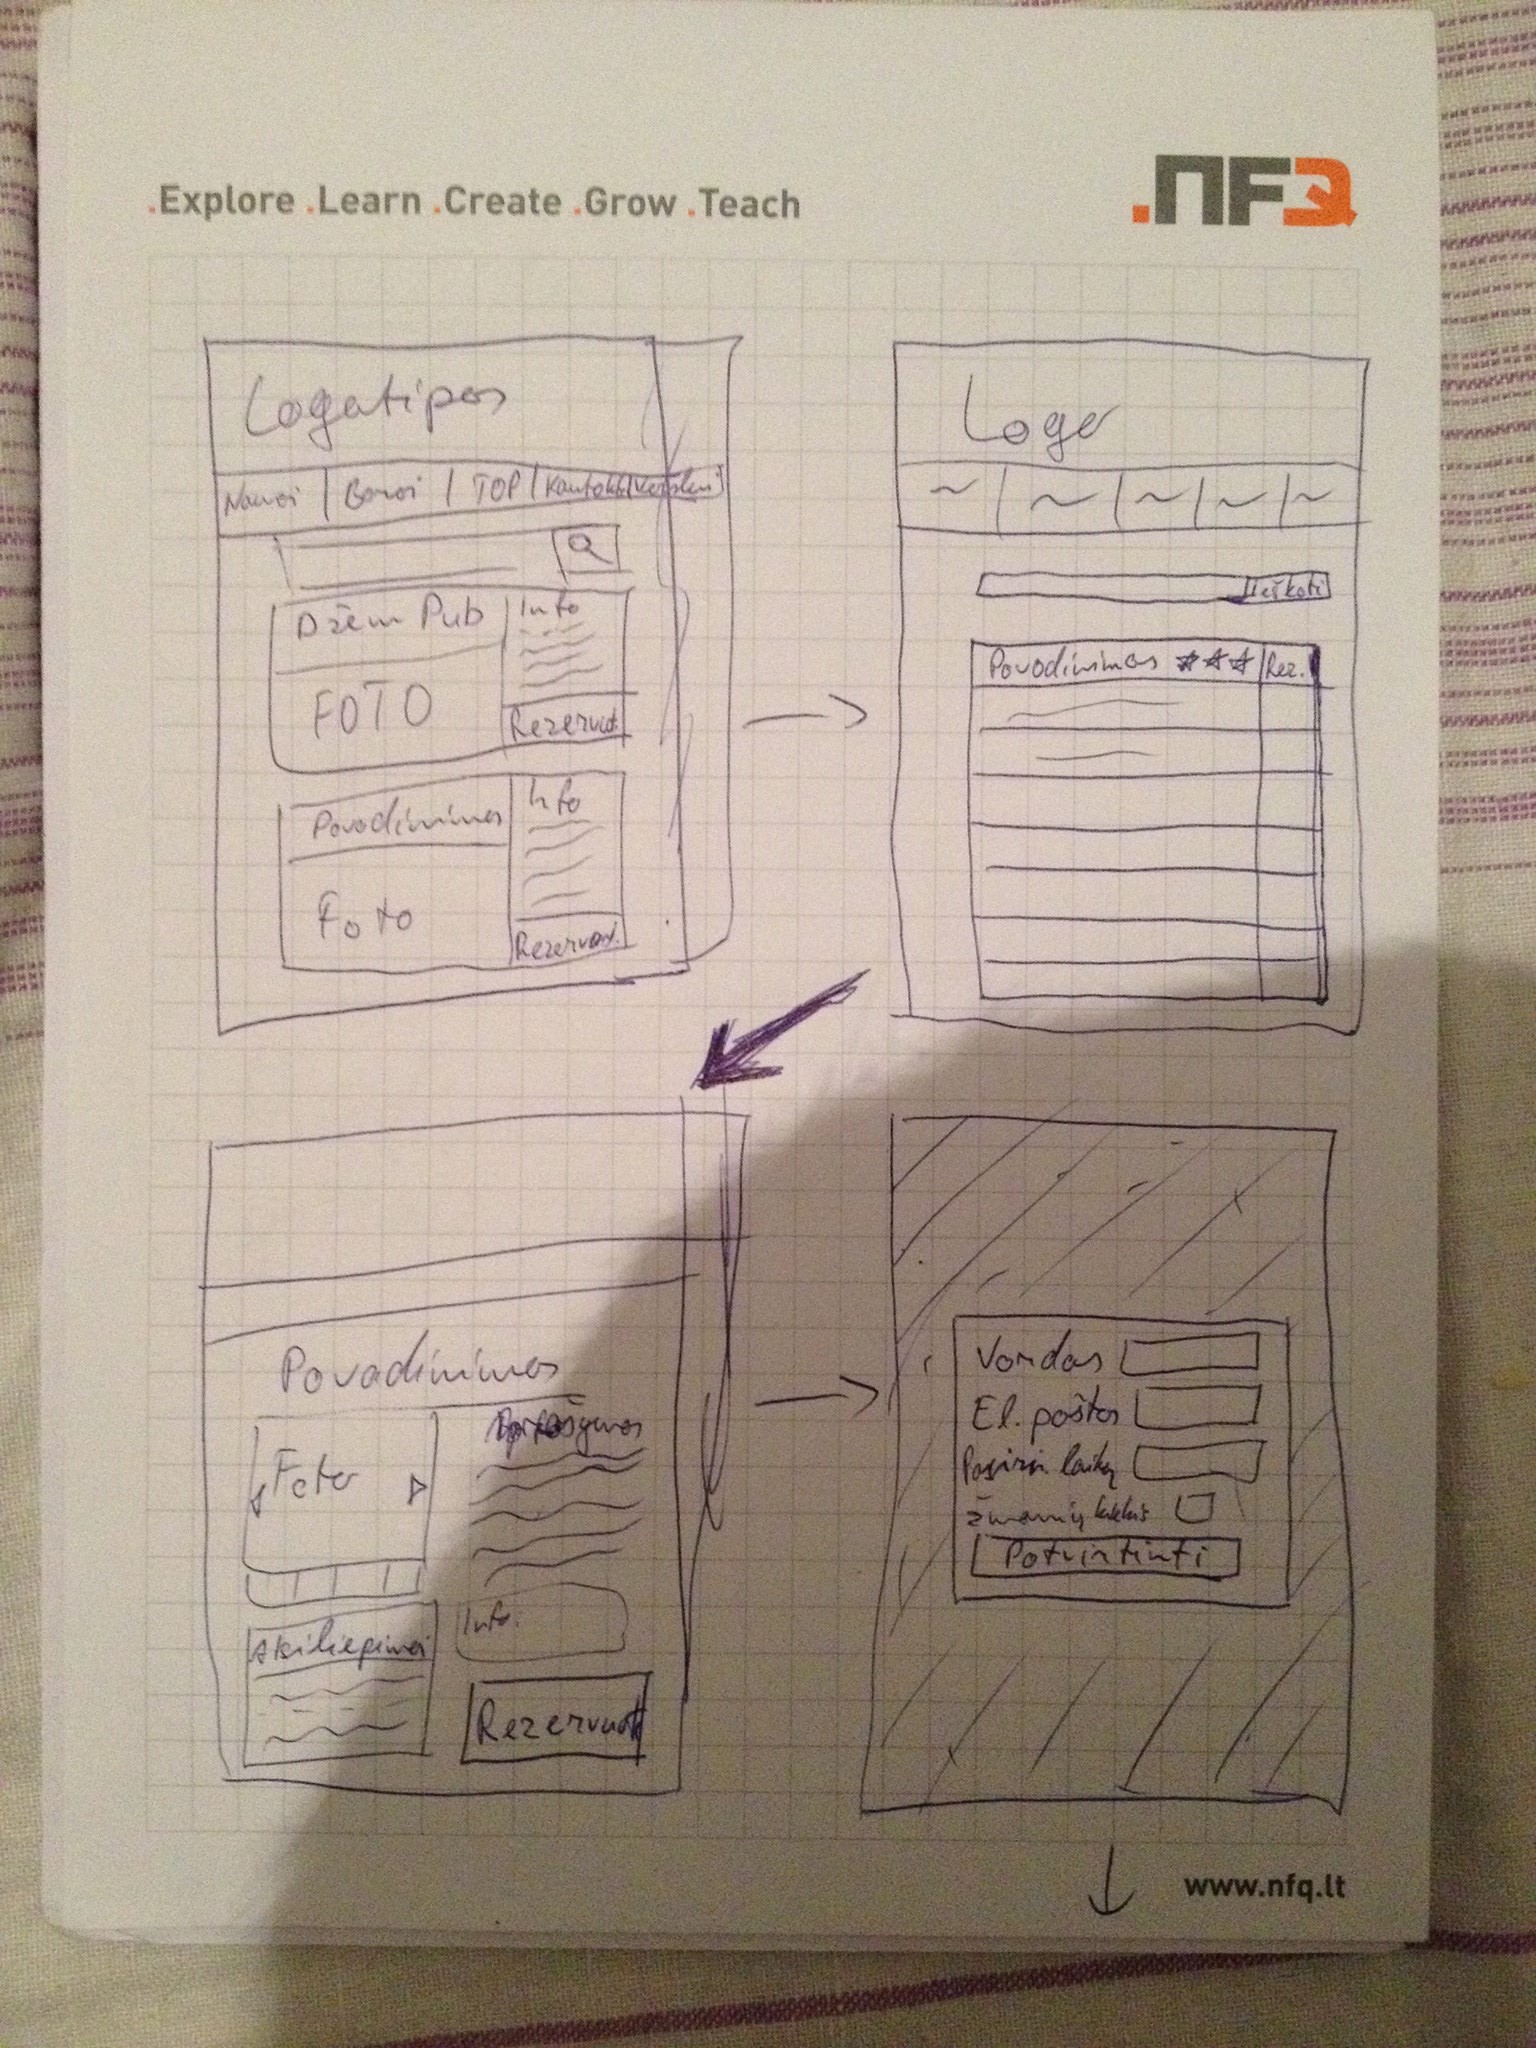 .Explore .Learn .Create .Grow .Teach
.NFQ
Logotipas
Barai | TOP |
Džem Pub
Info
FOTO
Rezervuot
Pavadinimas
Info
Foto
Rezervuot.
Logo
Ieškoti
Pavadinimas ★★★ Rez.
Pavadinimas
Foto
Aprašymas
Atsiliepimai
Info.
Rezervuoti
Vardas
El. paštas
Pasirin. laiką
žmonių
Patvirtinti
www.nfq.lt